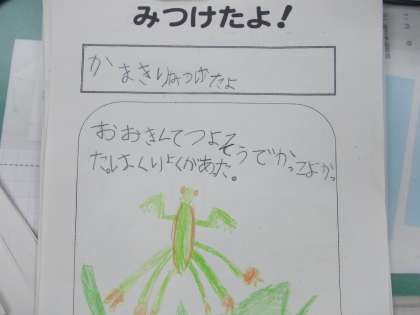 みつけたよ!
かまきりみつけたよ
おおきくてつよそうでかっこよかっ
た。はくりょくがあた。